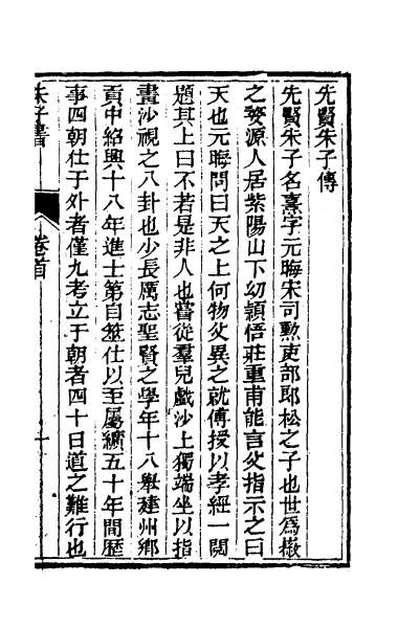 先賢朱子傳
先賢朱子名熹字元晦宋司勳吏部郎松之子也世爲徽
之婺源人居紫陽山下幼穎悟莊重甫能言父指示之曰
天也元晦問曰天之上何物父異之就傅授以孝經一閱
題其上曰不若是非人也嘗從羣兒戲沙上獨端坐以指
畫沙視之八卦也少長厲志聖賢之學年十八舉建州鄉
貢中紹興十八年進士第自筮仕以至屬纊五十年間歷
事四朝仕于外者僅九考立于朝者四十日道之難行也
朱子書
卷首
一